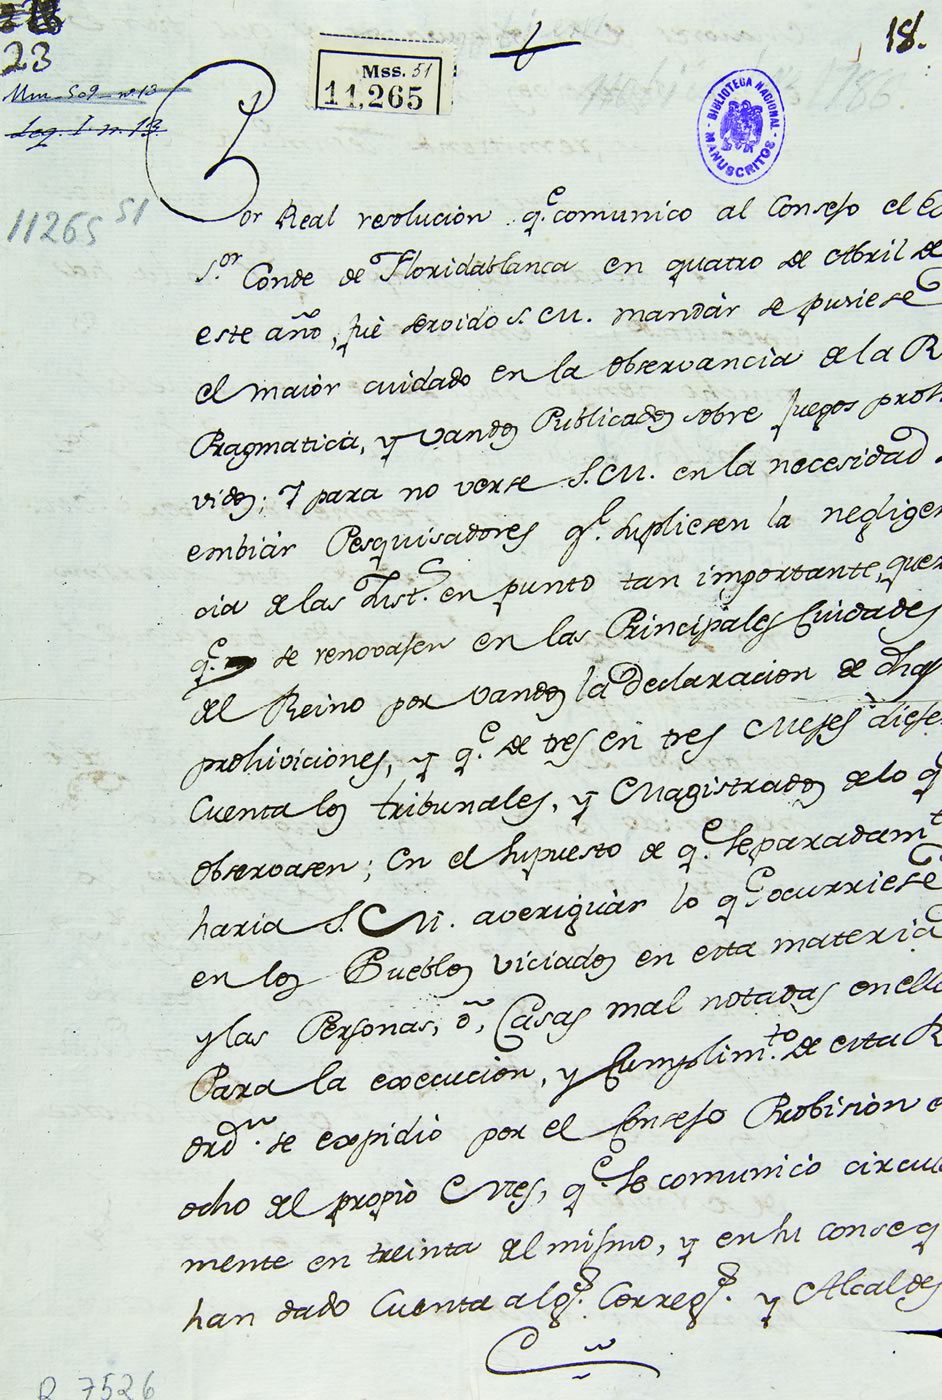 23
18.
Mss. 51
11,265
Mss. 509 - nº 13
Leg. I. n. 13.
BIBLIOTECA NACIONAL
MANUSCRITOS
11265 51
Por Real resolucion q.e comunico al Consejo el
S.or Conde de Floridablanca en quatro de Abril de
este año, fué servido S. M. mandár se pusiese
el maiór cuidado en la observancia de la R
Pragmatica, y vandos Publicados sobre Juegos prohi
vidos; Y para no verse S. M. en la necesidad
embiár Pesquisadores q.e supliesen la negligen
cia de las Just.s en punto tan importante, quer
q.e se renovasen en las Principales Ciudades
del Reino por vandos la Declaracion de dhas
prohiviciones, y q.e de tres en tres Meses diese
Cuenta los tribunales, y Magistrados de lo q
Observasen; En el supuesto de q.e separadam.te
haria S. M. averiguár lo q.e ocurriese
en los Pueblos viciados en esta materia
y las Personas, ó, Casas mal notadas en ella
Para la execucion, y Cumplim.to de esta R
ordn. se expidió por el Consejo Probision e
ocho del propio Mes, q.e se comunicó circul
mente en treinta del mismo, y en su conseq
han dado Cuenta algs. Corregs. y Alcaldes
R 7526